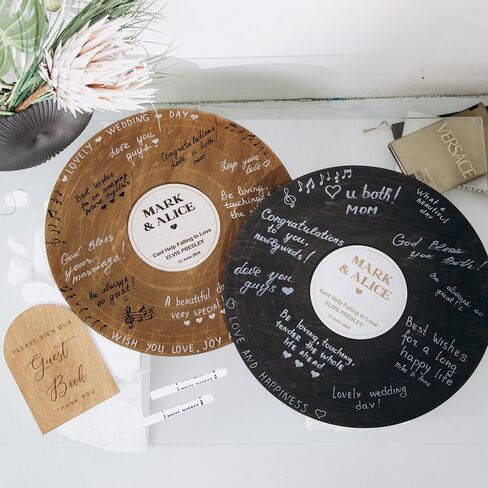 LOVELY WEDDING DAY
love you
guys
Congratulations
love you both
mom
Keep your
love
Best Wishes
on an amazing
future together
Be loving,
touching
the
God Bless
your
marriage!
Be always
so
great!
MARK
& ALICE
Cant Help Falling In Love
ELVIS PRESLEY
15 June 2024
A beautiful day
very special
WISH YOU LOVE, JOY
u both!
MOM
WHAT A
BEAUTIFUL
DAY!
Congratulations
to you,
newlyweds!
God Bless
you Both!
love you
guys
MARK
& ALICE
Cant Help Falling In Love
ELVIS PRESLEY
15 June 2024
Be always
so
great!
Be loving, touching,
tender the whole
life ahead
Best Wishes
for a long
happy life
Lovely wedding
day!
LOVE AND HAPPINESS
PLEASE SIGN OUR
Guest
Book
THANK YOU
WHITE MARKER
WHITE MARKER
VERSACE